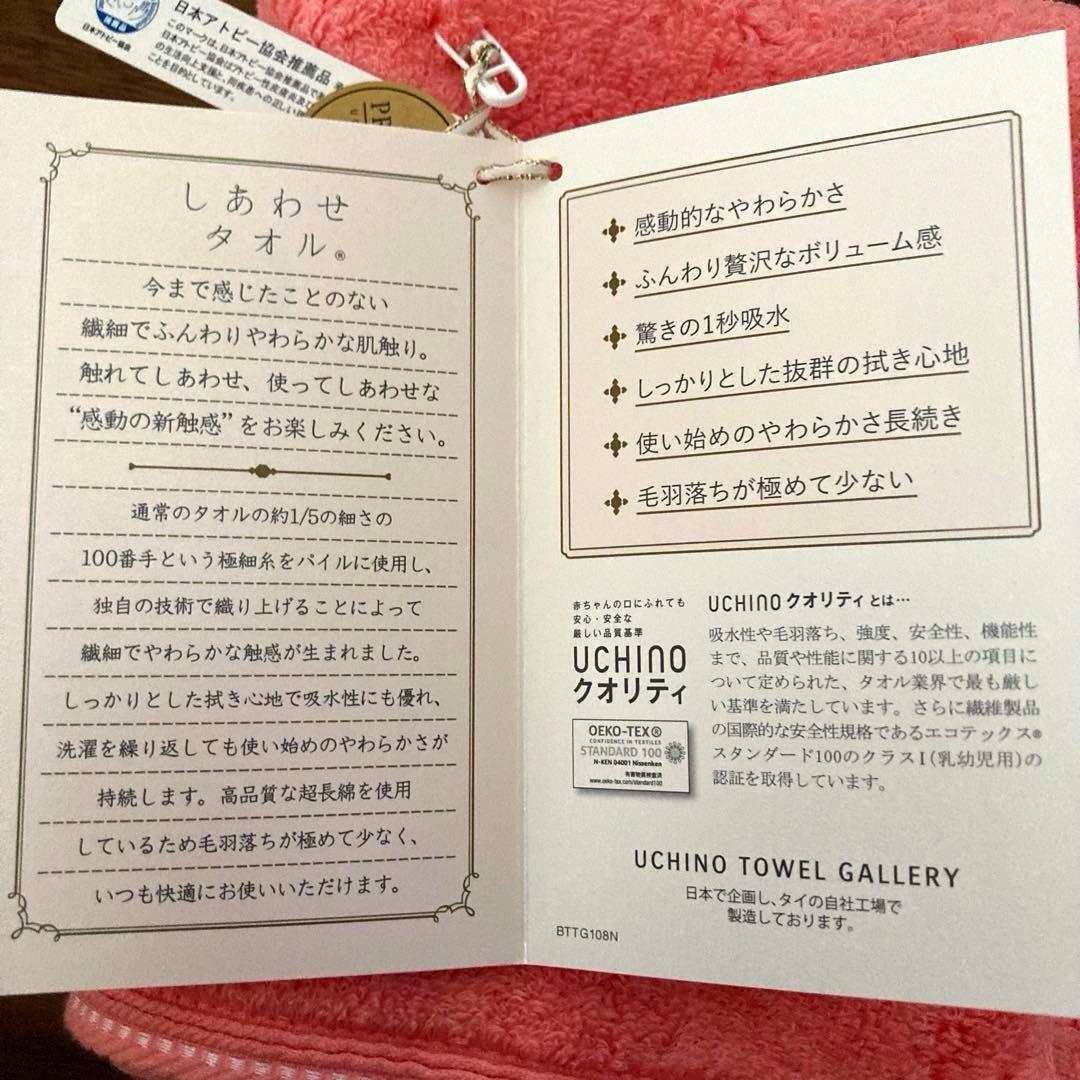 推奨品
日本アトピー協会
日本アトピー協会推奨品
このマークは、日本アトピー協会推奨品で
日本アトピー協会はアトピー性皮膚炎及び
の生活向上支援と、同疾患への正しい
ことを目的としています。
しあわせ
タオル®
今まで感じたことのない
繊細でふんわりやわらかな肌触り。
触れてしあわせ、使ってしあわせな
“感動の新触感”をお楽しみください。
通常のタオルの約1/5の細さの
100番手という極細糸をパイルに使用し、
独自の技術で織り上げることによって
繊細でやわらかな触感が生まれました。
しっかりとした拭き心地で吸水性にも優れ、
洗濯を繰り返しても使い始めのやわらかさが
持続します。高品質な超長綿を使用
しているため毛羽落ちが極めて少なく、
いつも快適にお使いいただけます。
感動的なやわらかさ
ふんわり贅沢なボリューム感
驚きの1秒吸水
しっかりとした抜群の拭き心地
使い始めのやわらかさ長続き
毛羽落ちが極めて少ない
赤ちゃんの口にふれても
安心・安全な
厳しい品質基準
UCHINO
クオリティ
OEKO-TEX®
CONFIDENCE IN TEXTILES
STANDARD 100
N-KEN 04001 Nissenken
有害物質検査済
www.oeko-tex.com/standard100
UCHINOクオリティとは…
吸水性や毛羽落ち、強度、安全性、機能性
まで、品質や性能に関する10以上の項目に
ついて定められた、タオル業界で最も厳し
い基準を満たしています。さらに繊維製品
の国際的な安全性規格であるエコテックス®
スタンダード100のクラスI(乳幼児用)の
認証を取得しています。
UCHINO TOWEL GALLERY
日本で企画し、タイの自社工場で
製造しております。
BTTG108N